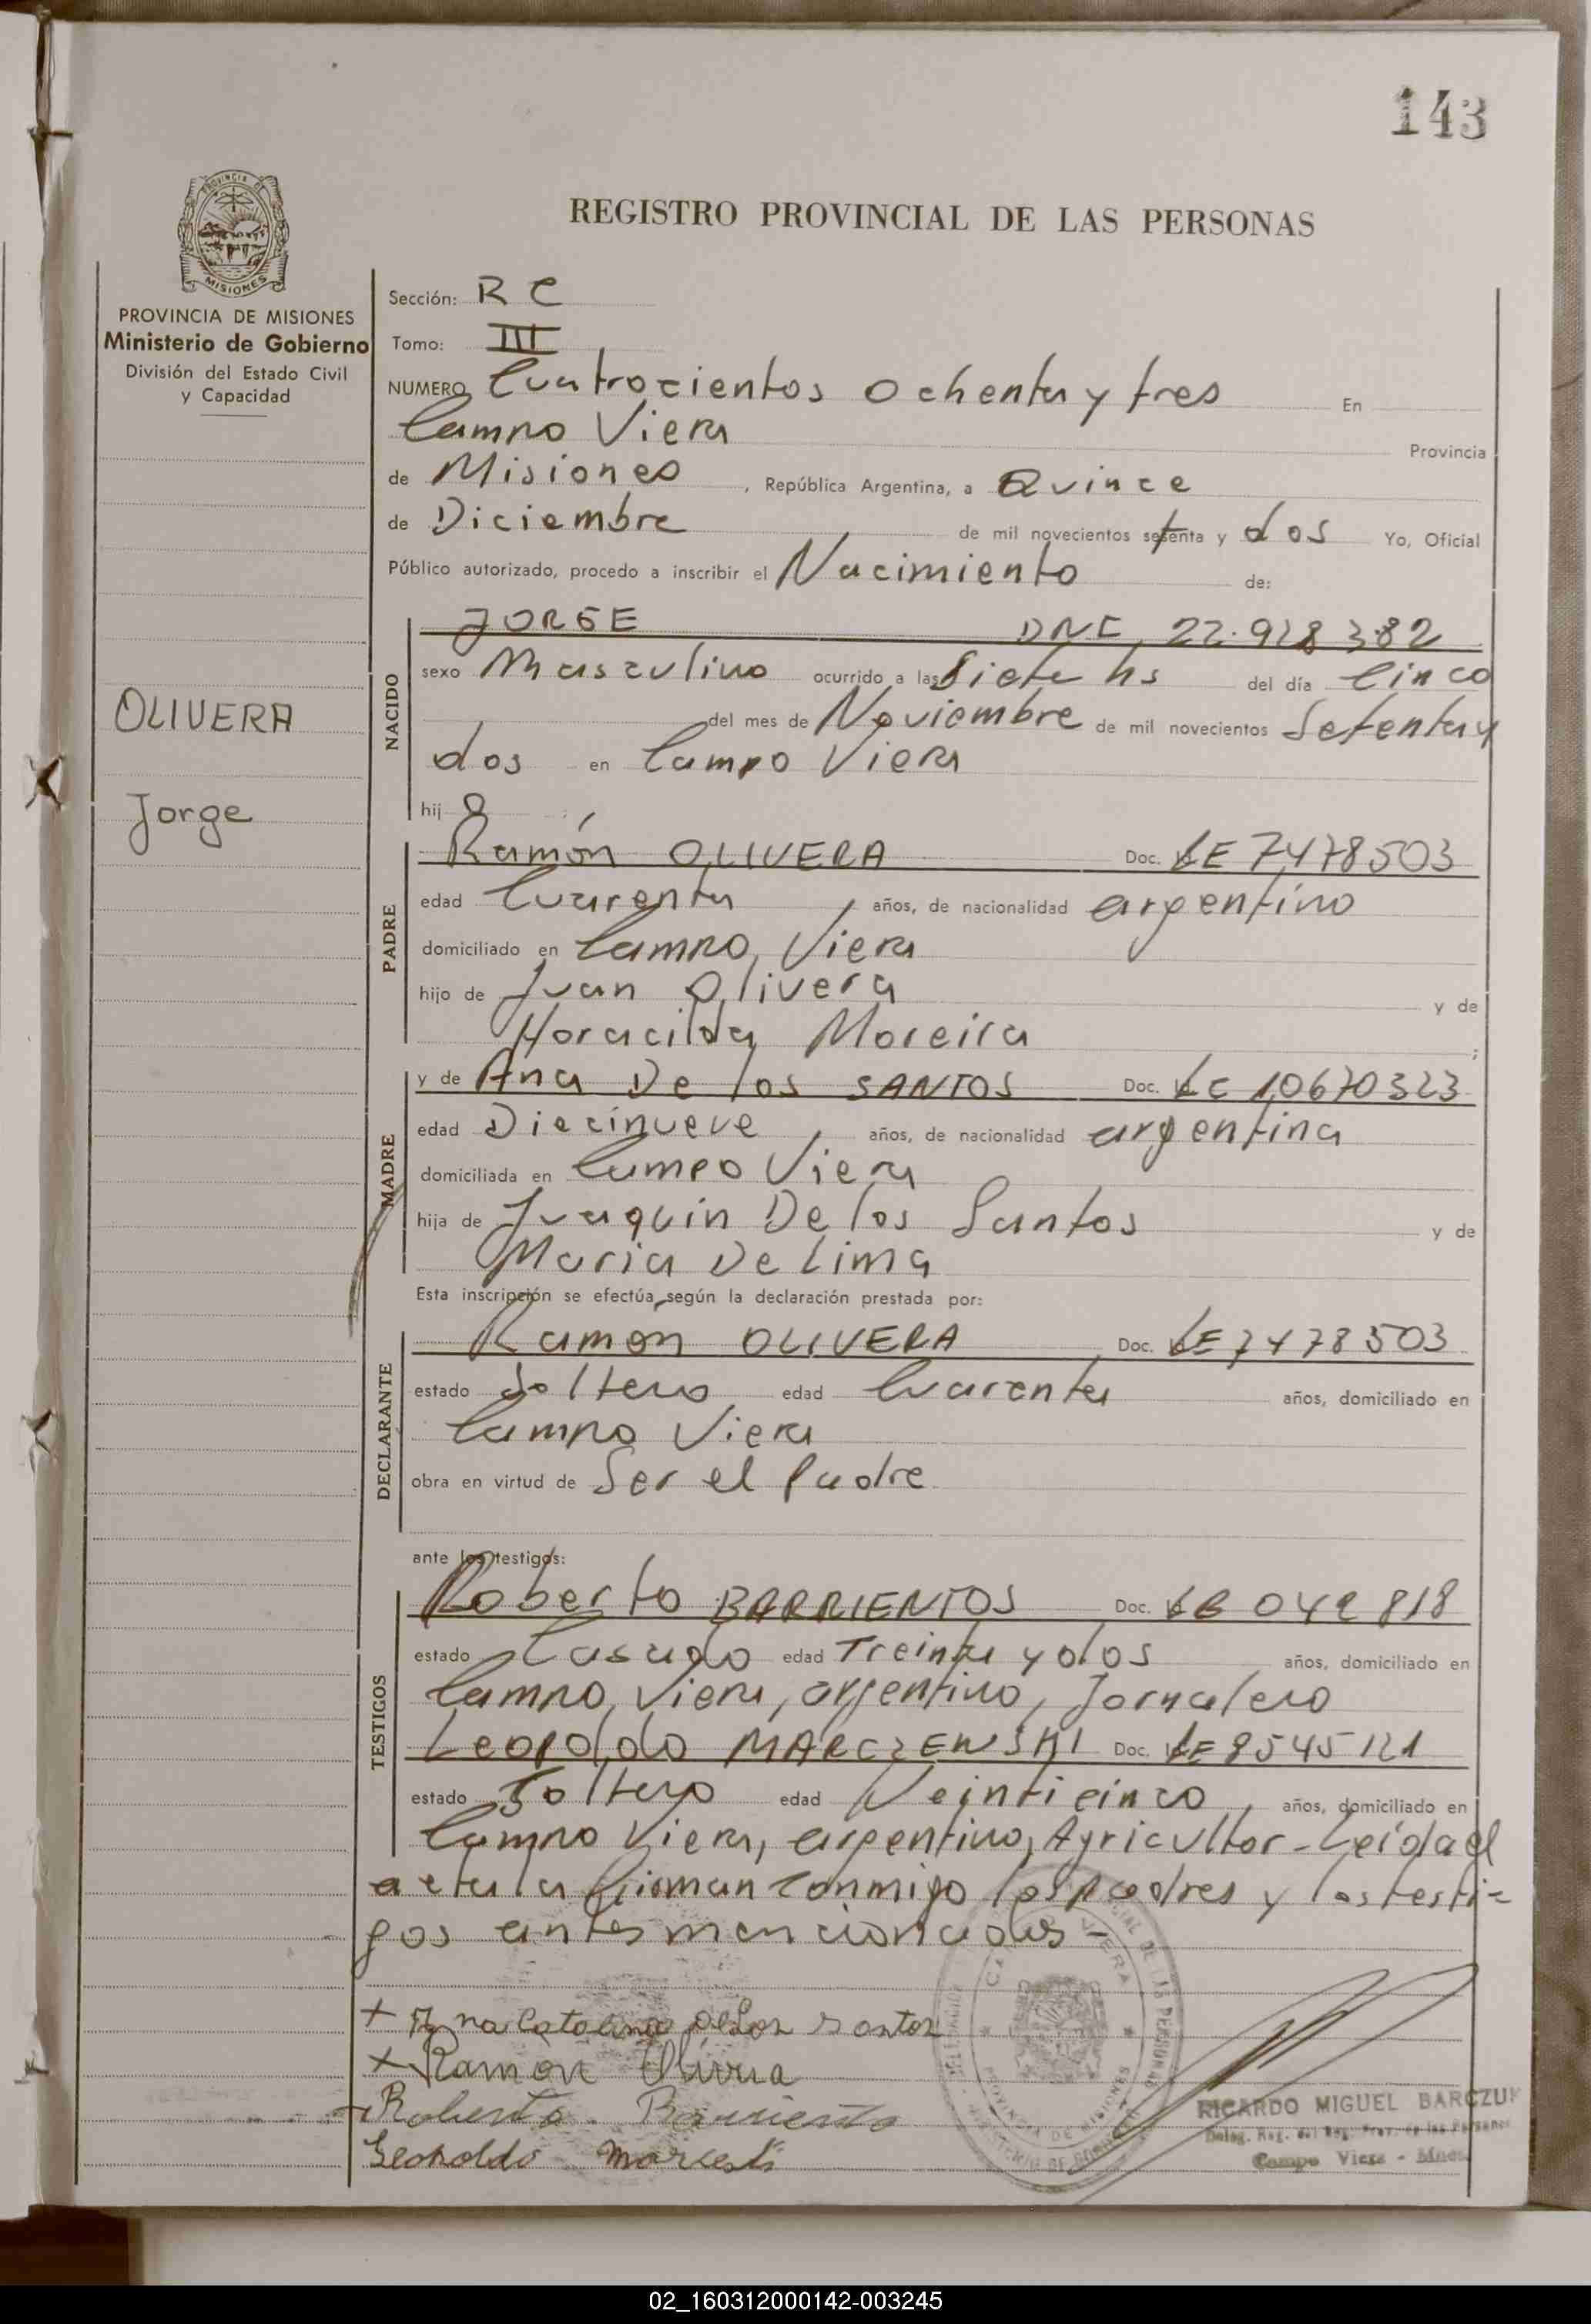 143
REGISTRO PROVINCIAL DE LAS PERSONAS
PROVINCIA DE
MISIONES
PROVINCIA DE MISIONES
Ministerio de Gobierno
División del Estado Civil
y Capacidad
OLIVERA
Jorge
Sección: R C
Tomo: III
NUMERO Cuatrocientos Ochenta y tres En
Campo Viera Provincia
de Misiones, República Argentina, a Quince
de Diciembre de mil novecientos setenta y dos Yo, Oficial
Público autorizado, procedo a inscribir el Nacimiento de:
NACIDO
JORGE DNI 22.928.382
sexo Masculino ocurrido a las Siete hs del día Cinco
del mes de Noviembre de mil novecientos Setenta y
dos en Campo Viera
hij o
PADRE
Ramón OLIVERA Doc. LE 7478503
edad Cuarenta, años, de nacionalidad argentino
domiciliado en Campo Viera
hijo de Juan Olivera y de
Horacilda Moreira;
MADRE
y de Ana De los SANTOS Doc. LC 10670323
edad Diecinueve, años, de nacionalidad argentina
domiciliada en Campo Viera
hija de Juaquin De los Santos y de
Maria De Lima
Esta inscripción se efectúa según la declaración prestada por:
DECLARANTE
Ramón OLIVERA Doc. LE 7478503
estado Soltero edad Cuarenta años, domiciliado en
Campo Viera
obra en virtud de Ser el Padre
ante los testigos:
TESTIGOS
Roberto BARRIENTOS Doc. 818
estado Casado edad Treinta y dos años, domiciliado en
Campo Viera, argentino, Jornalero
Leopoldo MARCZEWSKI Doc. LE 8545121
estado Soltero edad Veinticinco, años, domiciliado en
Campo Viera, argentino, Agricultor - Leida el
acta la firman conmigo los padres y los testi=
gos antes mencionados -
+ Ana Catalina de los santos
+ Ramón Olivera
Roberto Barrientos
Leopoldo
PROVINCIA DE MISIONES
RICARDO MIGUEL BARCZUK
Deleg. Reg. del Reg. Prov. de las Personas
Campo Viera - Mnes.
02_160312000142-003245